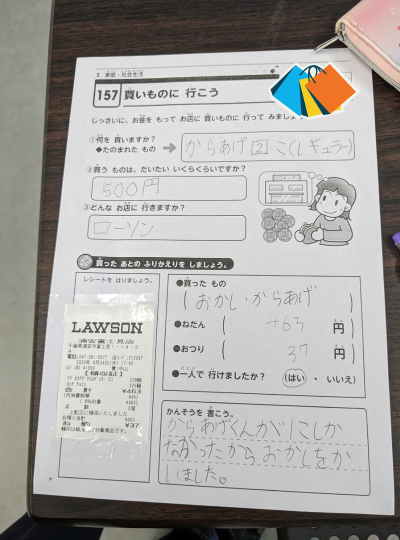 8. 家庭・社会生活
157 買いものに 行こう
じっさいに、お金を もって お店に 買いものに 行って みましょ
①何を 買いますか?
◆たのまれた もの
からあげ 2 こ(レギュラー)
②買う ものは、だいたい いくらくらいですか?
500円
③どんな お店に 行きますか?
ローソン
買った あとの ふりかえりを しましょう。
レシートを はりましょう。
●買った もの
(おかし・からあげ)
●ねだん ( 463 円
●おつり ( 37 円
●一人で 行けましたか? (はい ・ いいえ)
LAWSON
浦安富士見店
かんそうを 書こう。
からあげくんが1こしか
なかったから おかしをか
いました。